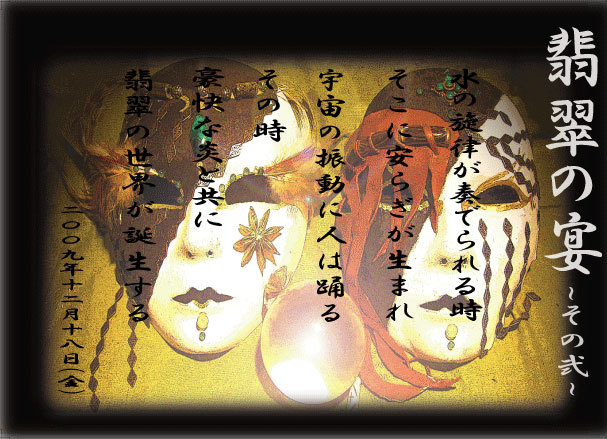 翡翠の宴～その弐～
水の旋律が奏でられる時
そこに安らぎが生まれ
宇宙の振動に人は踊る
その時
豪快な炎と共に
翡翠の世界が誕生する
二〇〇九年十二月十八日(金)